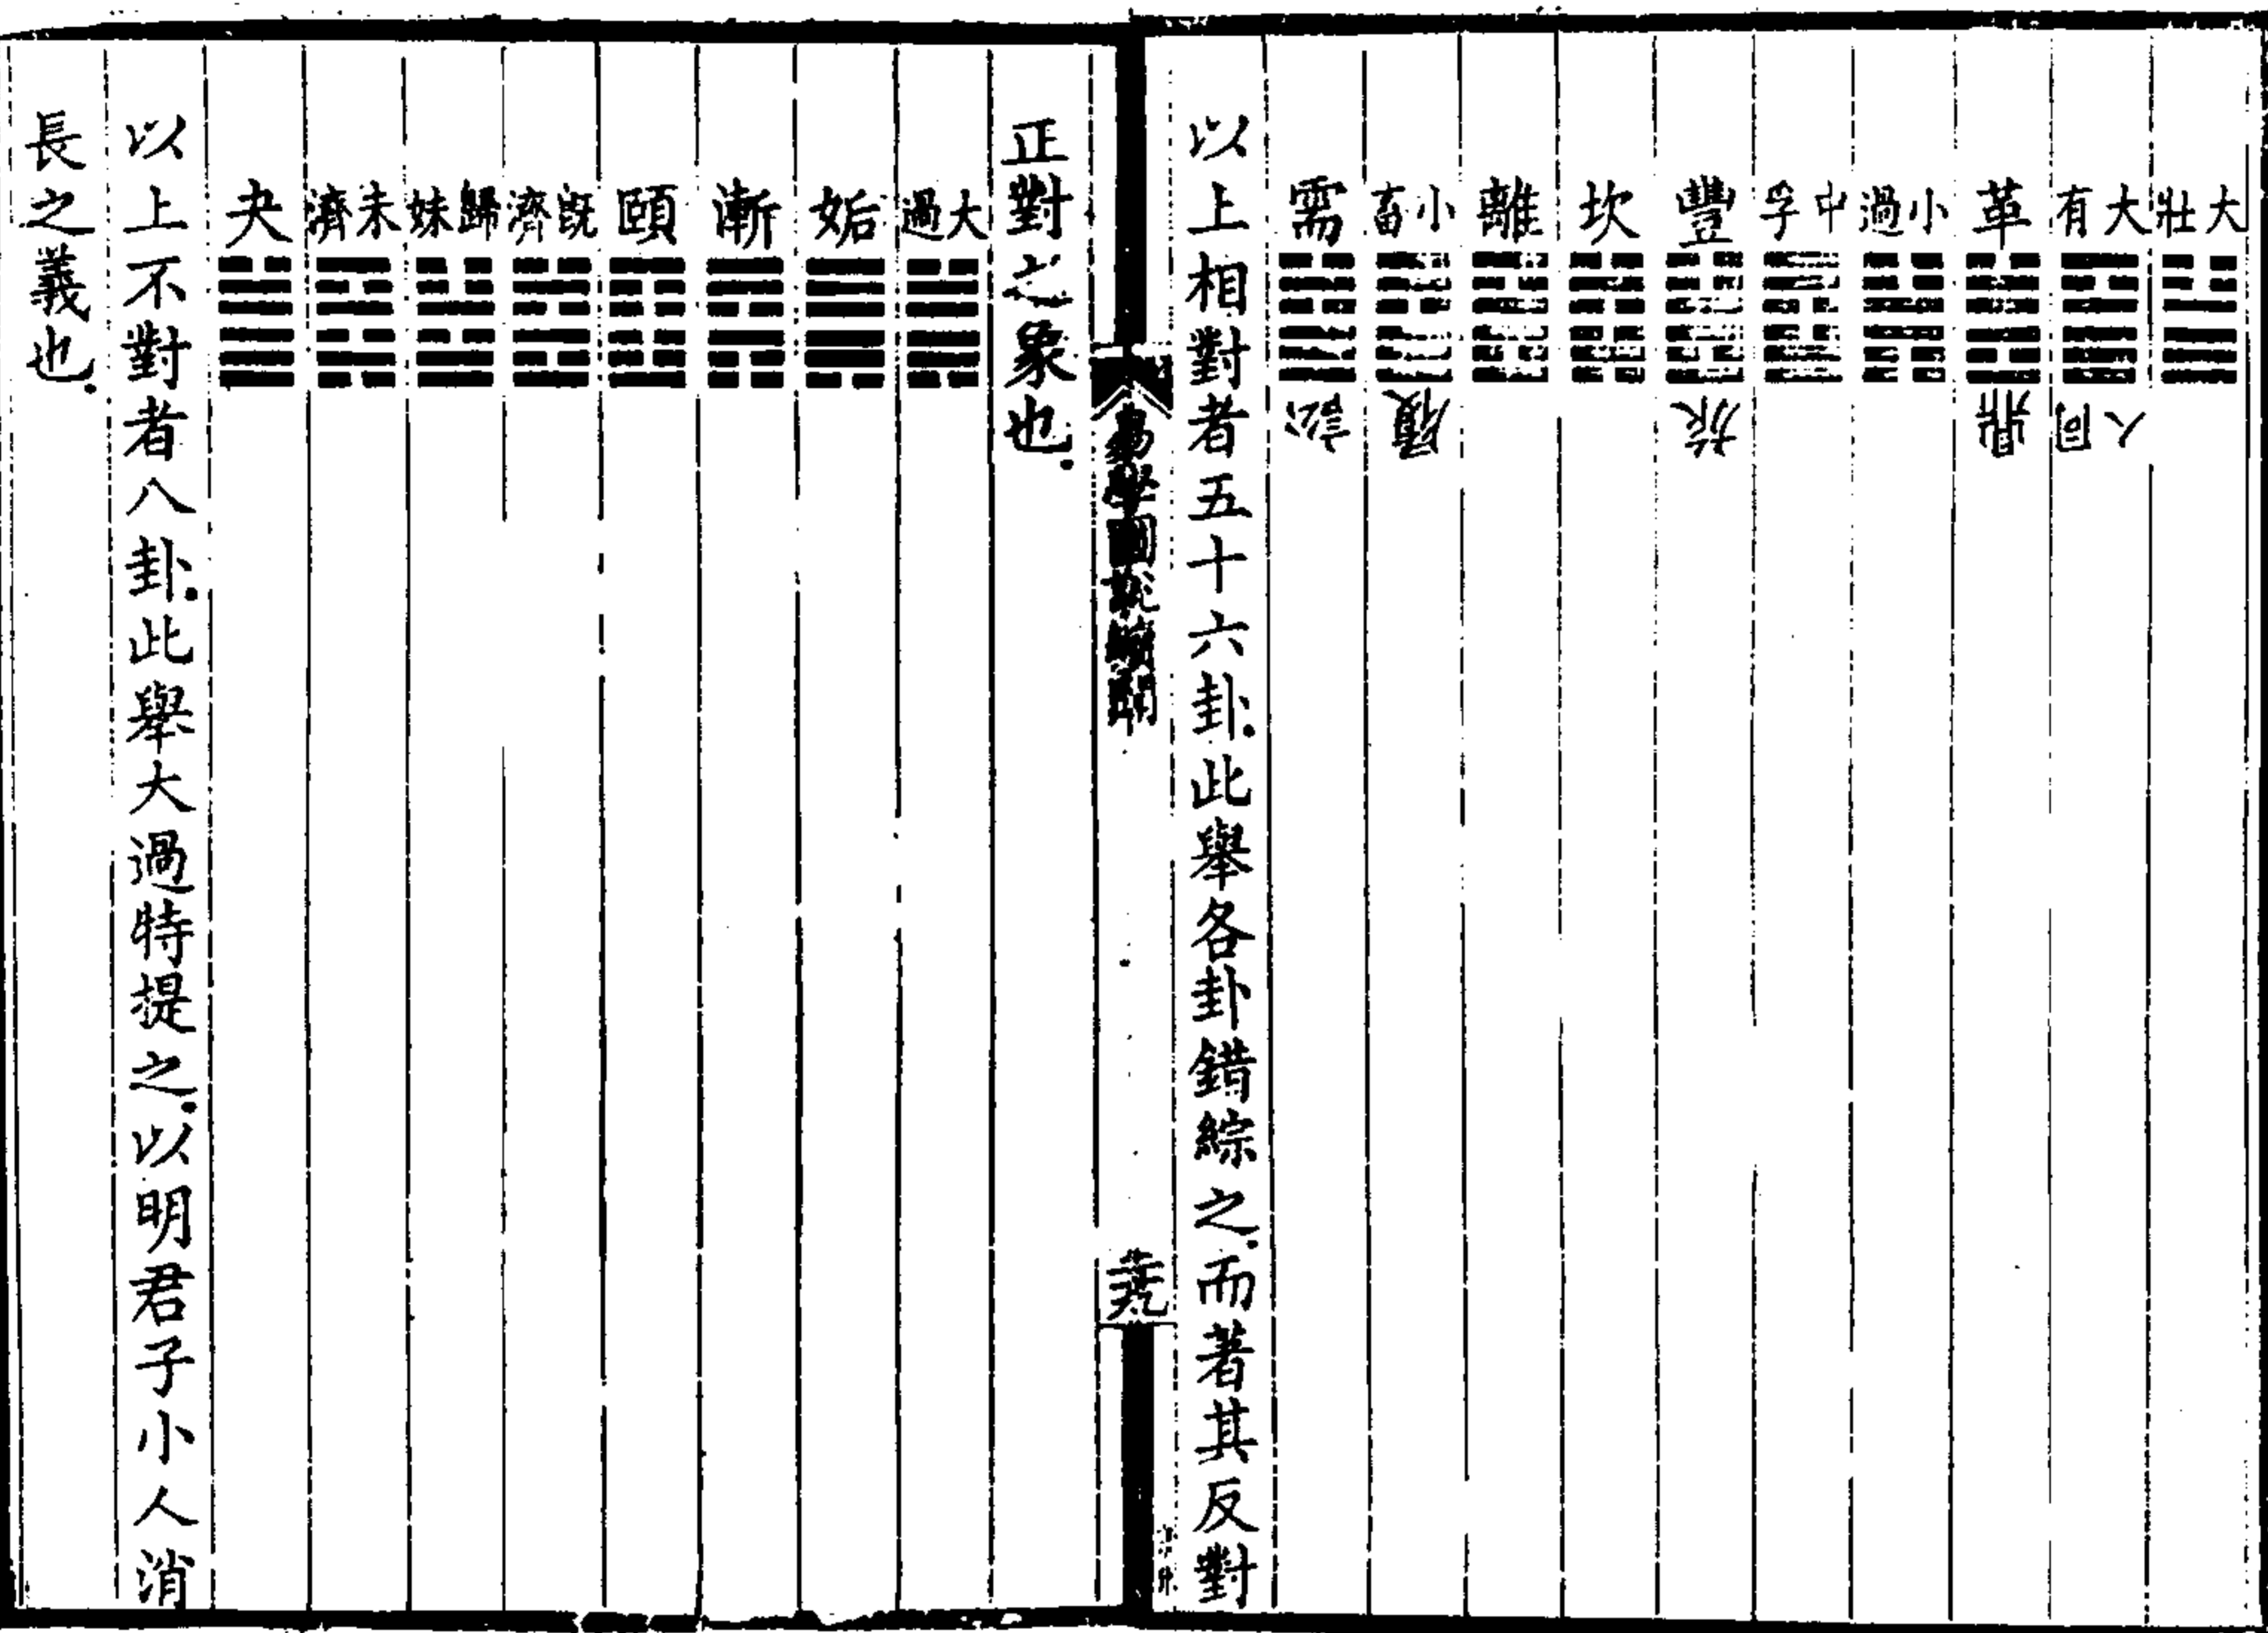 大壯
大有 同人
革 鼎
小過
中孚
豐 旅
坎
離
小畜 履
需 訟
以上相對者五十六卦.此舉各卦錯綜之.而著其反對
易學圖說續聞
正對之象也.
大過
姤
漸
頤
旣濟
歸妹
未濟
夬
以上不對者八卦.此舉大過特提之.以明君子小人消
長之義也.